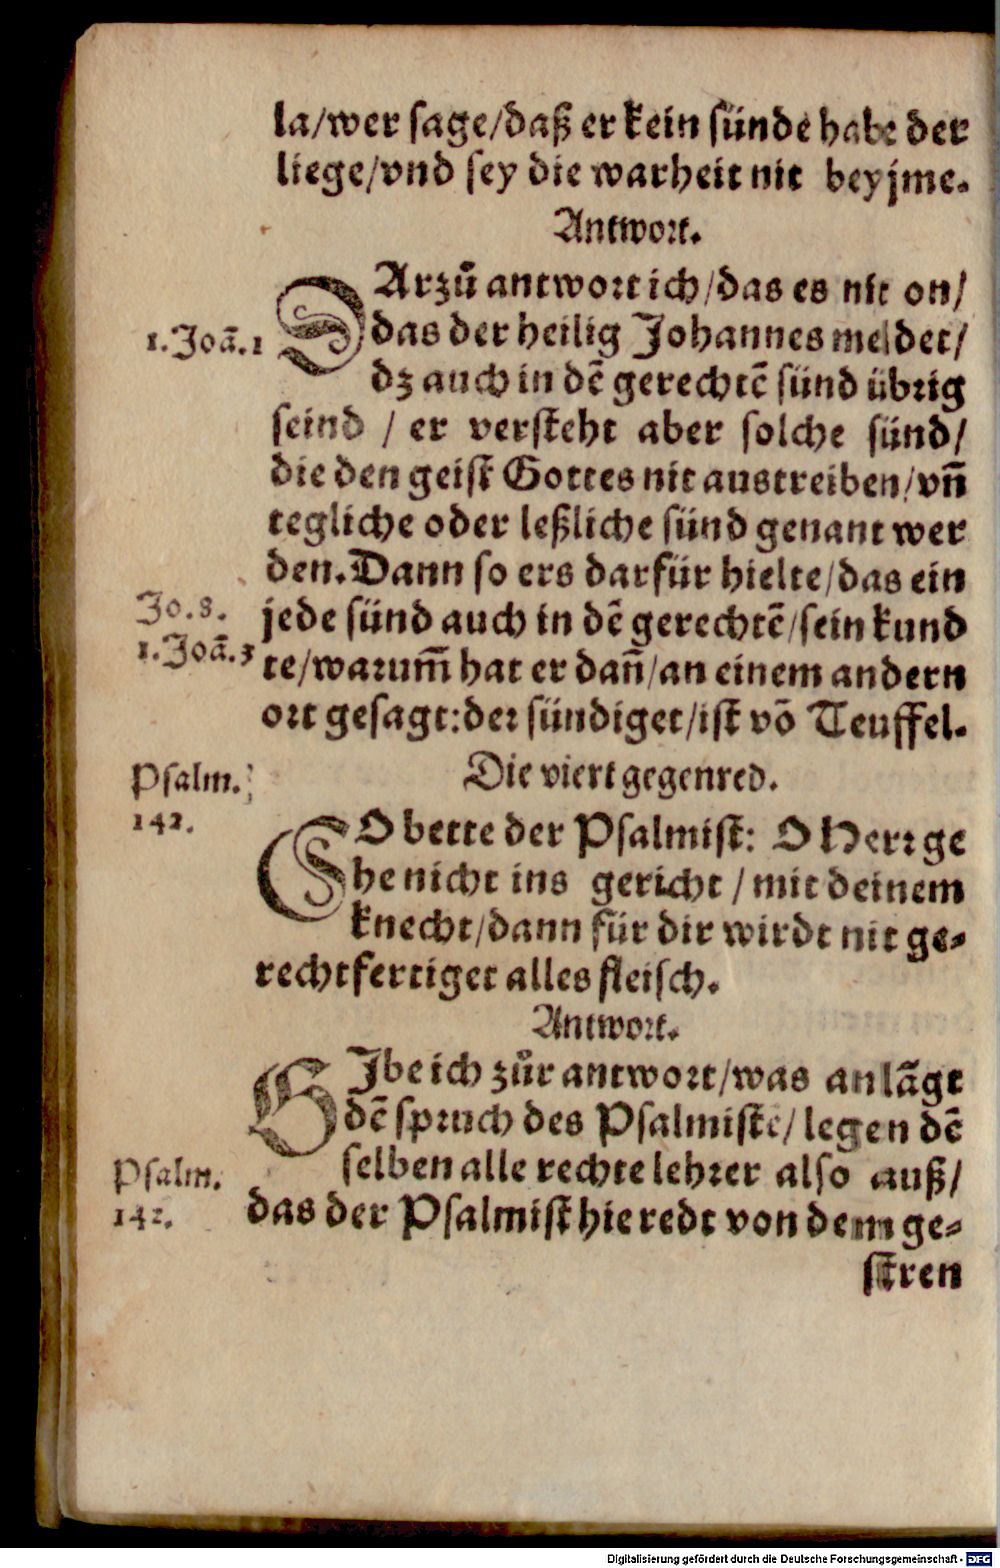 la/wer sage/daß er kein sünde habe der
liege/vnd sey die warheit nit beyjme.
Antwort.
DArzů antwort ich/das es nit on/
1.Joã.1
das der heilig Johannes meldet/
dz auch in dẽ gerechtẽ sünd übrig
seind / er versteht aber solche sünd/
die den geist Gottes nit austreiben/vñ
tegliche oder leßliche sünd genant wer
den. Dann so ers darfür hielte/das ein
Jo.8.
jede sünd auch in dẽ gerechtẽ/sein kund
1.Joã.3
te/warum̃ hat er dañ/an einem andern
ort gesagt:der sündiget/ist võ Teuffel.
Die viert gegenred.
Psalm.
142.
SO bette der Psalmist: O Herr ge
he nicht ins gericht / mit deinem
knecht/dann für dir wirdt nit ge-
rechtfertiget alles fleisch.
Antwort.
GJbe ich zůr antwort/was anlãgt
dẽ spruch des Psalmistẽ/legen dẽ
selben alle rechte lehrer also auß/
Psalm.
142.
das der Psalmist hie redt von dem ge-
stren
Digitalisierung gefördert durch die Deutsche Forschungsgemeinschaft - DFG